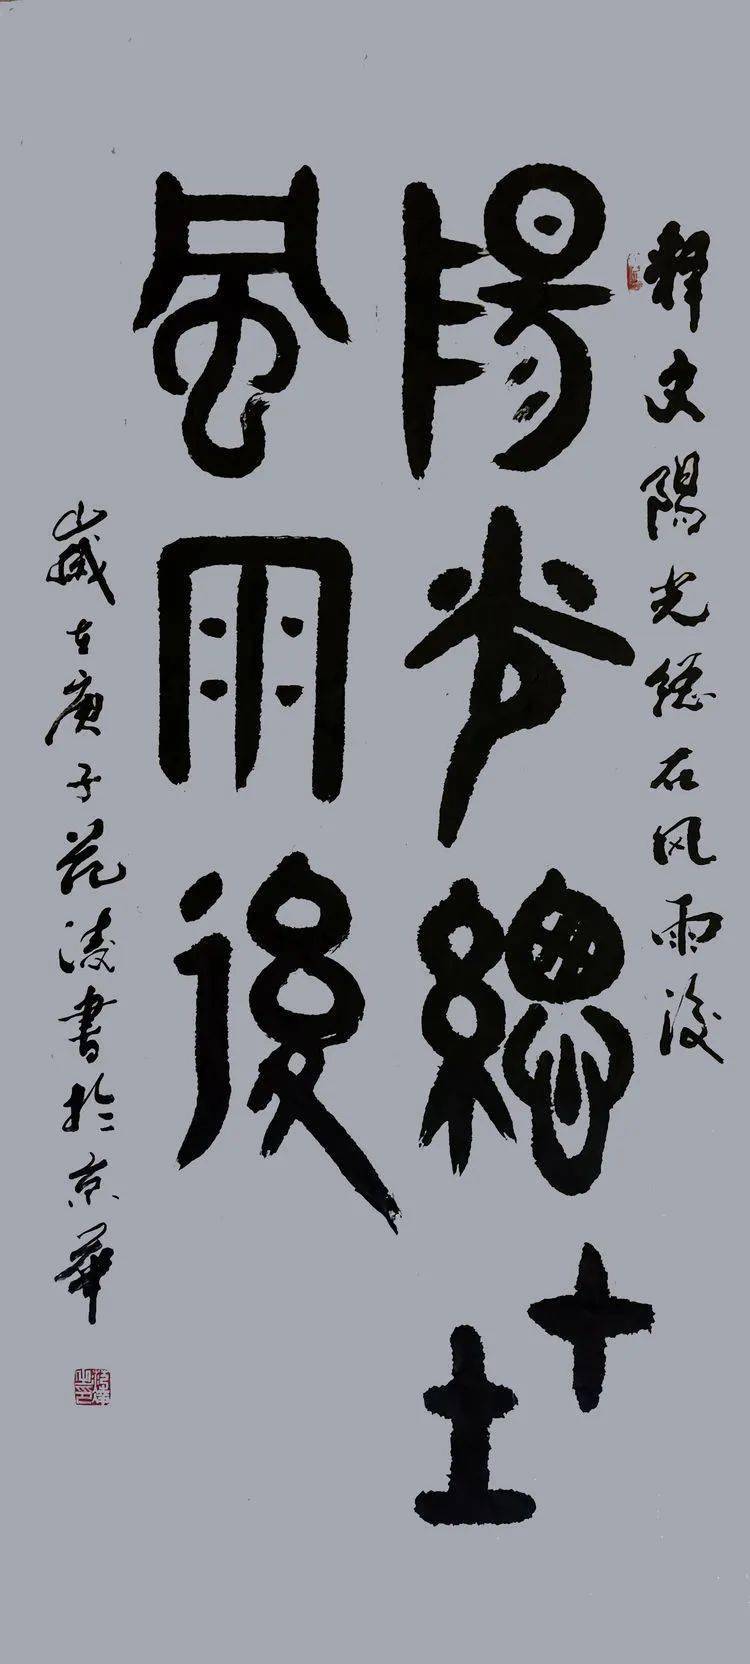 釋文陽光總在风雨後
陽光總在
風雨後
歲在庚子范淩書於京華